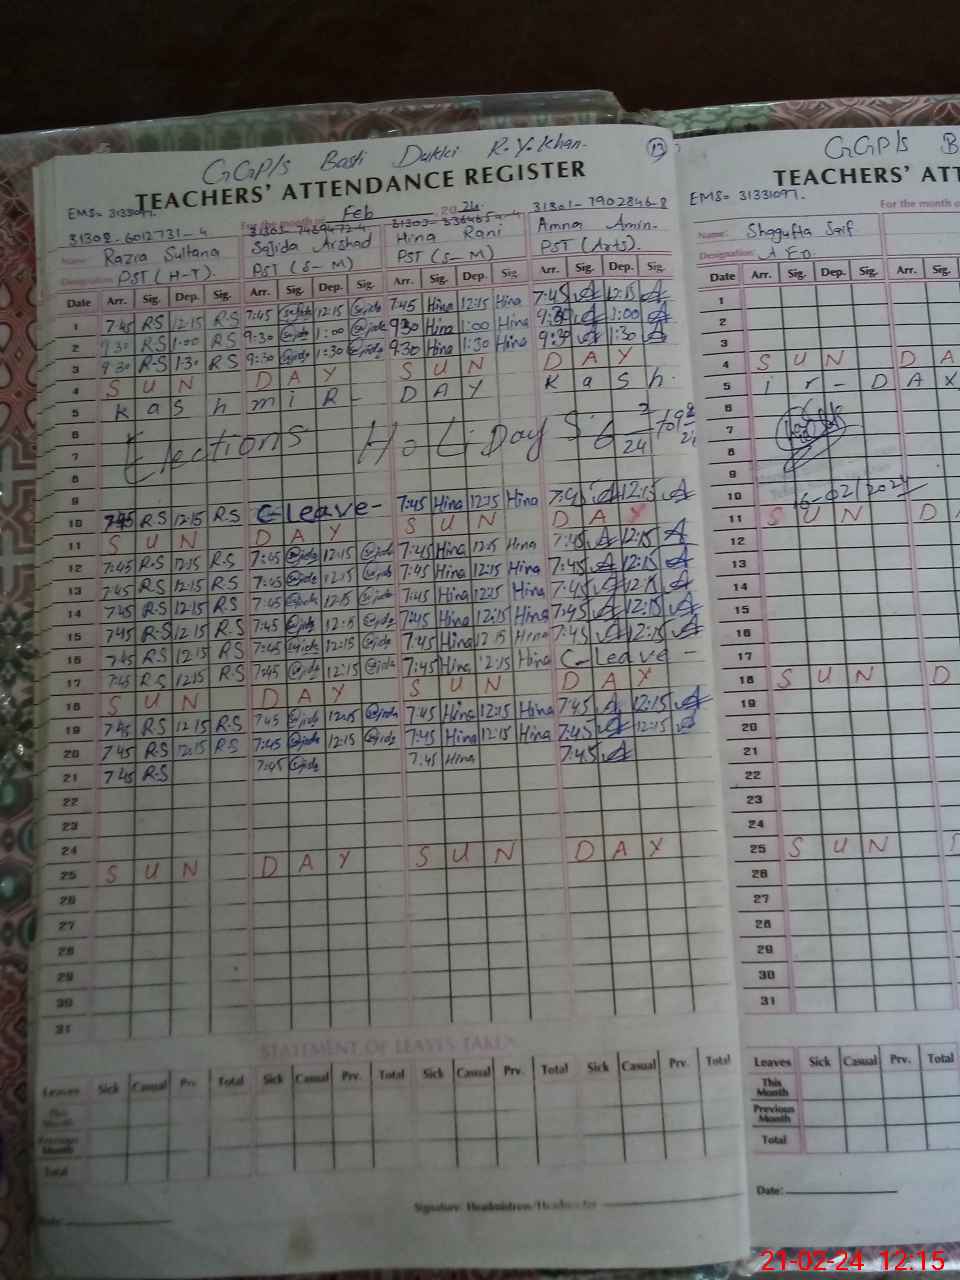 GGP/s Basti Dukki R.Y.Khan. 13
TEACHERS' ATTENDANCE REGISTER
EMS= 31331097.
For the month of Feb 20 24.
31302-6012731-4 31303-7469472-4 31303-3364654-4 31301-7902846-8
Name: Razia Sultana Sajida Arshad Hina Rani Amna Amin-
Designation PST (H-T). PST (S-M) PST (S-M) PST (Arts).
Date Arr. Sig. Dep. Sig. Arr. Sig. Dep. Sig. Arr. Sig. Dep. Sig. Arr. Sig. Dep. Sig.
1 7:45 R.S 12:15 R.S 7:45 Sajida 12:15 Sajida 7:45 Hina 12:15 Hina 7:45 12:15
2 9:30 R.S 1:00 R.S 9:30 Sajida 1:00 Sajida 9:30 Hina 1:00 Hina 9:30 1:00
3 9:30 R-S 1:30 R S 9:30 Sajida 1:30 Sajida 9:30 Hina 1:30 Hina 9:30 1:30
4 S U N D A Y S U N D A Y
5 K a s h m i R - D A Y K a s h.
6
7 Elections HoLiDay S 6 2/24 to 9 2/24
8
9
10 7:45 R.S 12:15 R.S C-Leave- 7:45 Hina 12:15 Hina 7:45 12:15
11 S U N D A Y S U N D A Y
12 7:45 R.S 12:15 R.S 7:45 Sajida 12:15 Sajida 7:45 Hina 12:15 Hina 7:45 12:15
13 7:45 R.S 12:15 R.S 7:45 Sajida 12:15 Sajida 7:45 Hina 12:15 Hina 7:45 12:15
14 7:45 R.S 12:15 R.S 7:45 Sajida 12:15 Sajida 7:45 Hina 12:15 Hina 7:45 12:15
15 7:45 R-S 12:15 R.S 7:45 Sajida 12:15 Sajida 7:45 Hina 12:15 Hina 7:45 12:15
16 7:45 R.S 12:15 R.S 7:45 Sajida 12:15 Sajida 7:45 Hina 12:15 Hina 7:45 12:15
17 7:45 R.S 12:15 R.S 7:45 Sajida 12:15 Sajida 7:45 Hina 12:15 Hina C-Leave -
18 S U N D A Y S U N D A Y
19 7:45 R.S 12:15 R.S 7:45 Sajida 12:15 Sajida 7:45 Hina 12:15 Hina 7:45 12:15
20 7:45 R.S 12:15 R.S 7:45 Sajida 12:15 Sajida 7:45 Hina 12:15 Hina 7:45 12:15
21 7:45 R.S 7:45 Sajida 7:45 Hina 7:45
22
23
24
25 S U N D A Y S U N D A Y
26
27
28
29
30
31
STATEMENT OF LEAVES TAKEN
Leaves Sick Casual Prv. Total Sick Casual Prv. Total Sick Casual Prv. Total Sick Casual Prv. Total
This Month
Previous Month
Total
Date: Signature: Headmistress/Headmaster
GGP/s B
TEACHERS' ATT
EMS= 31331097.
For the month o
Name: Shagufta Saif
Designation: A E.O.
Date Arr. Sig. Dep. Sig. Arr. Sig.
1
2
3
4 S U N D A
5 i r - D A Y
6
7
8
9
10 16-02/2024
11 S U N D A
12
13
14
15
16
17
18 S U N D
19
20
21
22
23
24
25 S U N
26
27
28
29
30
31
Leaves Sick Casual Prv. Total
This Month
Previous Month
Total
Date:
21-02-24 12:15